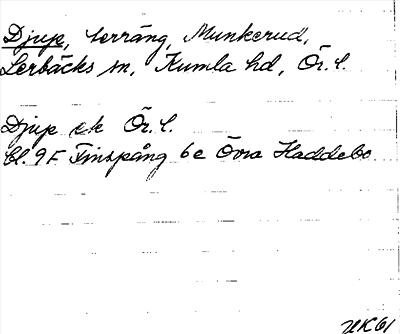 Djup, terräng, Munkerud,
Lerbäcks sn, Kumla hd, Ör. l.
Djup ek Ör. l.
bl. 9F Finspång 6e Övra Haddebo